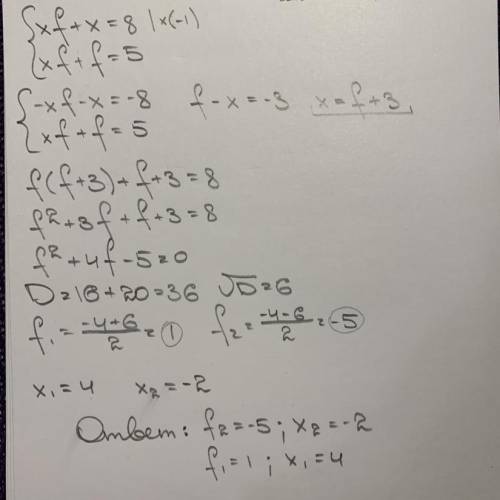 xf+x=8 |x(-1)
xf+f=5
-xf-x=-8 f-x=-3 x=f+3
xf+f=5
f(f+3)+f+3=8
f²+3f+f+3=8
f²+4f-5=0
D=16+20=36 √D=6
f₁=(-4+6)/2=1 f₂=(-4-6)/2=-5
x₁=4 x₂=-2
Ответ: f₂=-5; x₂=-2
f₁=1; x₁=4